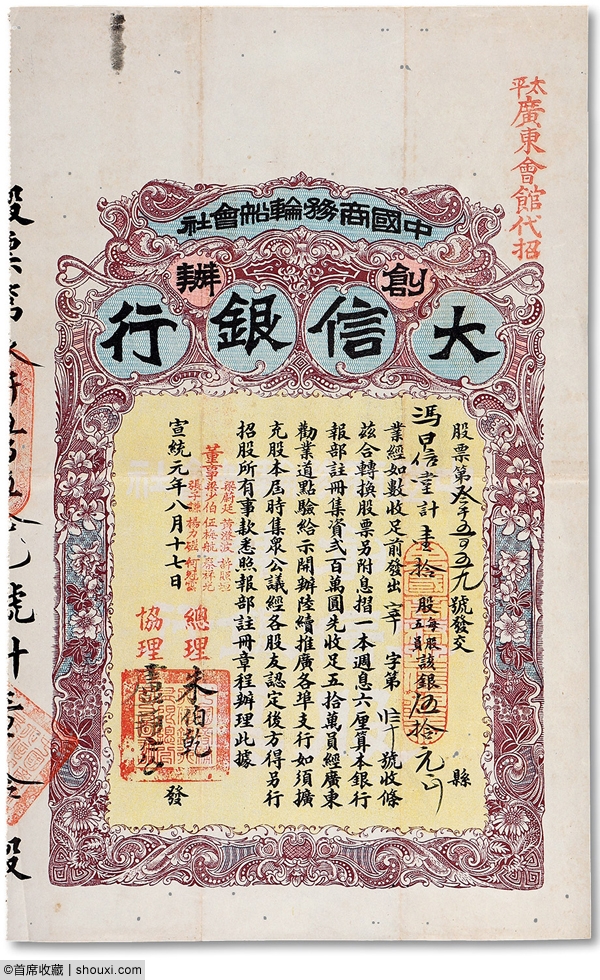 太平
廣東會館代招
中國商務輪船會社
創辦
大信銀行
股票第叁千五百五九號發交
縣
馮日信堂計壹拾股每股五員該銀伍拾元正
業經如數收足前發出 字第 號收條
茲合轉換股票另附息摺一本週息六厘算本銀行
報部註冊集資貳百萬圓先收足五拾萬員經廣東
勸業道點驗給示開辦陸續推廣各埠支行如須擴
充股本屆時集眾公議經各股友認定後方得另行
招股所有事款悉照報部註冊章程辦理此據
董事
梁蔚廷 黃澄波
梁少伯 伍梅航
張子謙 楊力磋
總理
朱伯乾
協理
宣統元年八月十七日
發
股票第
號計
股
©首席收藏 | shouxi.com